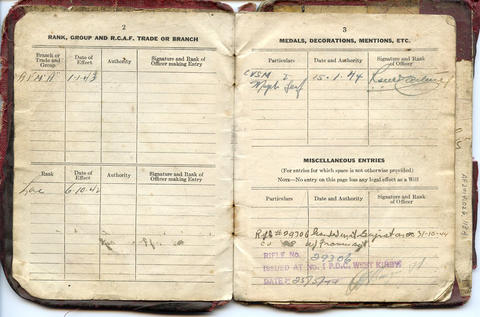 2
RANK, GROUP AND R.C.A.F. TRADE OR BRANCH
Branch or Trade and Group
Date of Effect
Authority
Signature and Rank of Officer making Entry
1-1-43
Rank
Date of Effect
Authority
Signature and Rank of Officer making Entry
Lac
6-10-42
3
MEDALS, DECORATIONS, MENTIONS, ETC.
Particulars
Date and Authority
Signature and Rank of Officer
CVSM &
Maple Leaf
15-1-44
MISCELLANEOUS ENTRIES
(For entries for which space is not otherwise provided)
NOTE—No entry on this page has any legal effect as a Will
Particulars
Date and Authority
Signature and Rank of Officer
Rifle #29306 31-10-44
RIFLE No. 29306
ISSUED AT No. 1 P.D.C. WEST KIRBY
DATE 25/5/44